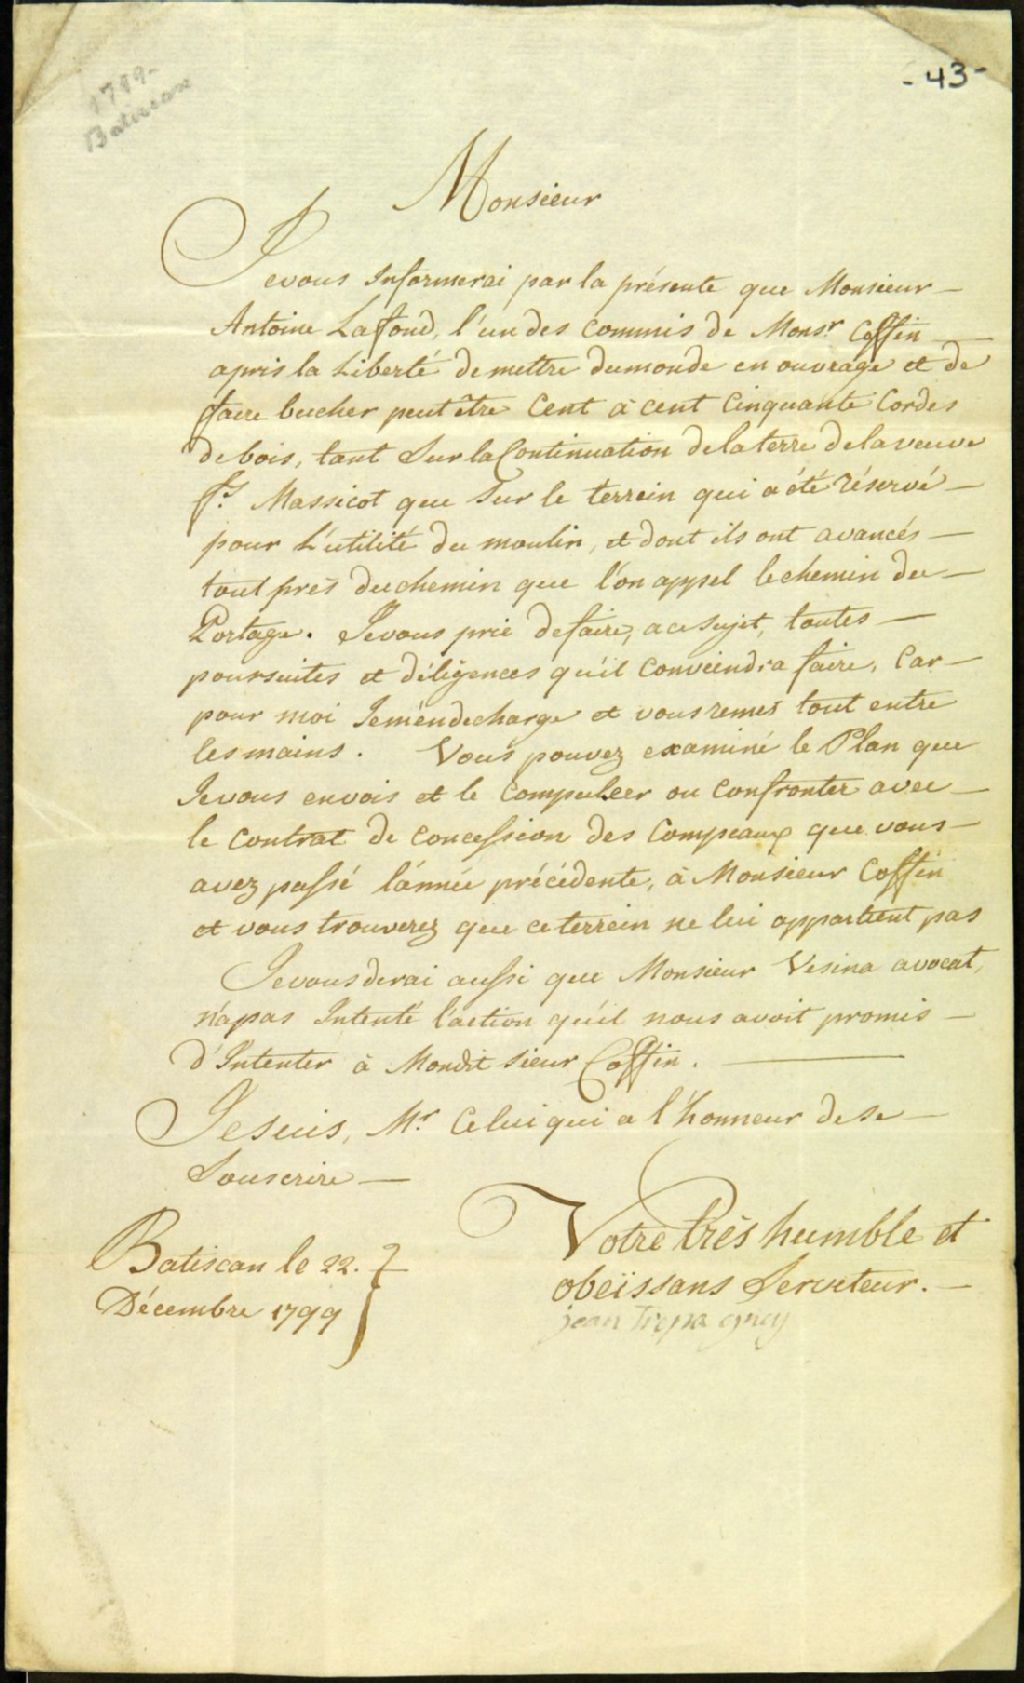 1799-
Batiscan
- 43 -
Monsieur
Je vous Informerai par la présente que Monsieur —
Antoine Lafond, l'un des Commis de Monsr. Coffin —
apris la Liberté de mettre dumonde en ouvrage et de
faire bucher peut être Cent à cent Cinquante Cordes
de bois, tant Sur la Continuation delaterre delaveuve
f. Massicot que Sur le terrein qui a été réservé —
pour L'utilité du moulin, et dont ils ont avancés —
tout près duchemin que l'on appel lechemin du —
Portage. Jevous prie defaire, a ce Sujet, toutes —
poursuites et déligences qu'il Conveindra faire, Car —
pour moi Jeméndecharge et vous remet tout entre
les mains. Vous pouvez examiné le Plan que
Jevous envois et le Compulser ou Confronter avec —
le Contrat de Concession des Compeaux que vous —
avez passé l'année précédente, à Monsieur Coffin
et vous trouverez que ce terrein ne lui appartient pas
Jevousderai aussi que Monsieur Vesina avocat,
n'apas Intenté l'action qu'il nous avoit promis —
d'Intenter à Mondit Sieur Coffin. —
Jesuis, Mr. Celui qui a l'honneur de se —
Souscrire —
Votre très humble et
obeissans Serviteur. —
jean trepagney
Batiscan le 22. }
Décembre 1799 }